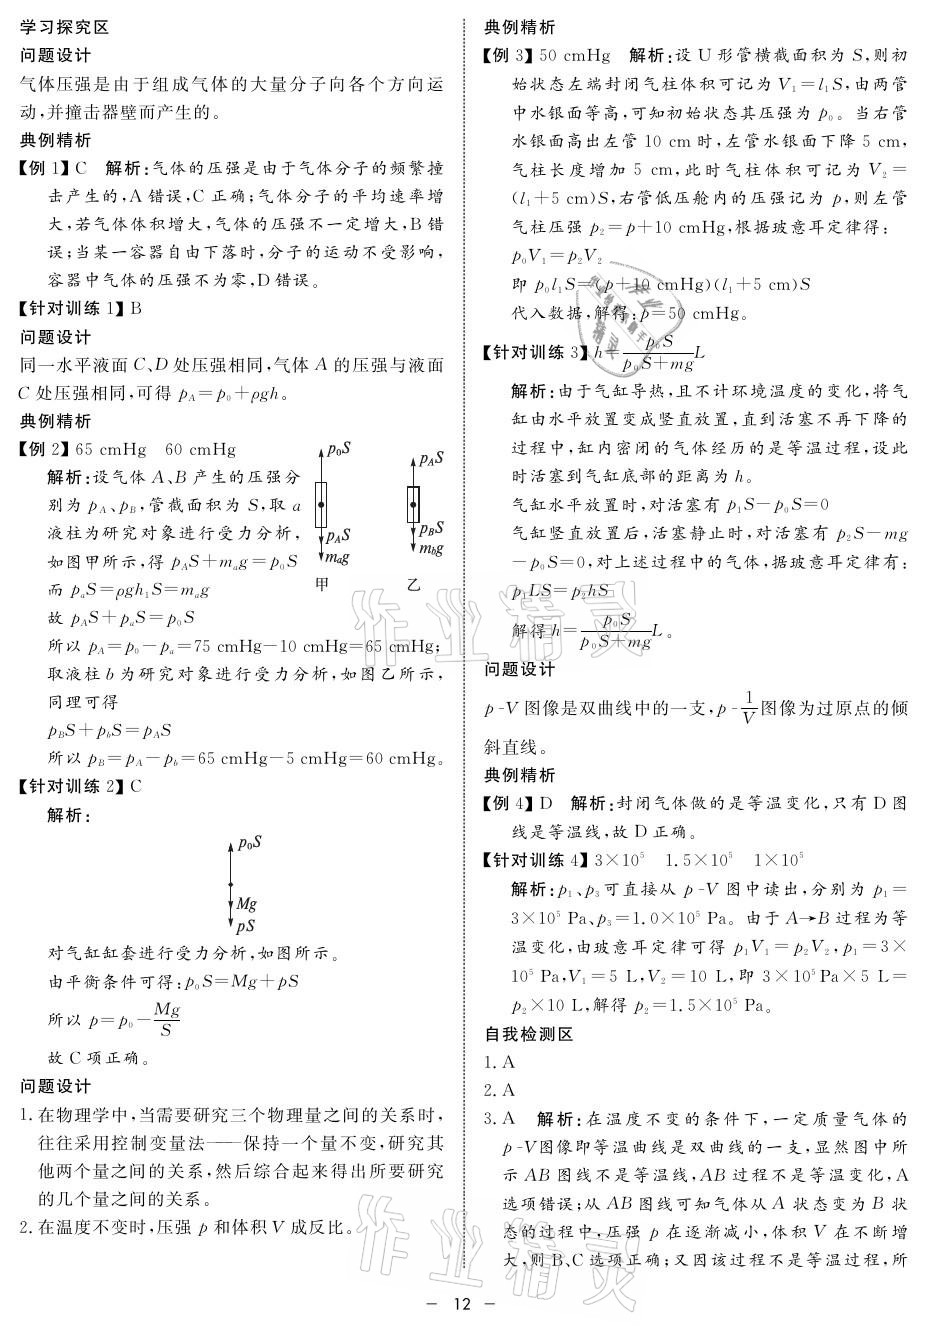 学习探究区
问题设计
气体压强是由于组成气体的大量分子向各个方向运
动,并撞击器壁而产生的。
典例精析
【例 1】C 解析:气体的压强是由于气体分子的频繁撞
击产生的,A 错误,C 正确;气体分子的平均速率增
大,若气体体积增大,气体的压强不一定增大,B 错
误;当某一容器自由下落时,分子的运动不受影响,
容器中气体的压强不为零,D 错误。
【针对训练 1】B
问题设计
同一水平液面 C、D 处压强相同,气体 A 的压强与液面
C 处压强相同,可得 p_A=p₀+ρgh。
典例精析
【例 2】65 cmHg 60 cmHg
解析:设气体 A、B 产生的压强分
别为 p_A、p_B,管截面积为 S,取 a
液柱为研究对象进行受力分析,
如图甲所示,得 p_AS+m_ag=p₀S
而 p_aS=ρgh₁S=m_ag
故 p_AS+p_aS=p₀S
p₀S
p_AS
m_ag
甲
p_AS
p_BS
m_bg
乙
所以 p_A=p₀-p_a=75 cmHg-10 cmHg=65 cmHg;
取液柱 b 为研究对象进行受力分析,如图乙所示,
同理可得
p_BS+p_bS=p_AS
所以 p_B=p_A-p_b=65 cmHg-5 cmHg=60 cmHg。
【针对训练 2】C
解析:
p₀S
Mg
pS
对气缸缸套进行受力分析,如图所示。
由平衡条件可得:p₀S=Mg+pS
所以 p=p₀-Mg/S
故 C 项正确。
问题设计
1. 在物理学中,当需要研究三个物理量之间的关系时,
往往采用控制变量法——保持一个量不变,研究其
他两个量之间的关系,然后综合起来得出所要研究
的几个量之间的关系。
2. 在温度不变时,压强 p 和体积 V 成反比。
典例精析
【例 3】50 cmHg 解析:设 U 形管横截面积为 S,则初
始状态左端封闭气柱体积可记为 V₁=l₁S,由两管
中水银面等高,可知初始状态其压强为 p₀。当右管
水银面高出左管 10 cm 时,左管水银面下降 5 cm,
气柱长度增加 5 cm,此时气柱体积可记为 V₂=
(l₁+5 cm)S,右管低压舱内的压强记为 p,则左管
气柱压强 p₂=p+10 cmHg,根据玻意耳定律得:
p₀V₁=p₂V₂
即 p₀l₁S=(p+10 cmHg)(l₁+5 cm)S
代入数据,解得:p=50 cmHg。
【针对训练 3】h=p₀S/(p₀S+mg)L
解析:由于气缸导热,且不计环境温度的变化,将气
缸由水平放置变成竖直放置,直到活塞不再下降的
过程中,缸内密闭的气体经历的是等温过程,设此
时活塞到气缸底部的距离为 h。
气缸水平放置时,对活塞有 p₁S-p₀S=0
气缸竖直放置后,活塞静止时,对活塞有 p₂S-mg
-p₀S=0,对上述过程中的气体,据玻意耳定律有:
p₁LS=p₂hS
解得 h=p₀S/(p₀S+mg)L。
问题设计
p-V 图像是双曲线中的一支,p-1/V图像为过原点的倾
斜直线。
典例精析
【例 4】D 解析:封闭气体做的是等温变化,只有 D 图
线是等温线,故 D 正确。
【针对训练 4】3×10⁵ 1.5×10⁵ 1×10⁵
解析:p₁、p₃可直接从 p-V 图中读出,分别为 p₁=
3×10⁵ Pa、p₃=1.0×10⁵ Pa。由于 A→B 过程为等
温变化,由玻意耳定律可得 p₁V₁=p₂V₂,p₁=3×
10⁵ Pa,V₁=5 L,V₂=10 L,即 3×10⁵Pa×5 L=
p₂×10 L,解得 p₂=1.5×10⁵ Pa。
自我检测区
1. A
2. A
3. A 解析:在温度不变的条件下,一定质量气体的
p-V图像即等温曲线是双曲线的一支,显然图中所
示 AB 图线不是等温线,AB 过程不是等温变化,A
选项错误;从 AB 图线可知气体从 A 状态变为 B 状
态的过程中,压强 p 在逐渐减小,体积 V 在不断增
大,则 B、C 选项正确;又因该过程不是等温过程,所
作业精灵
作业精灵
- 12 -